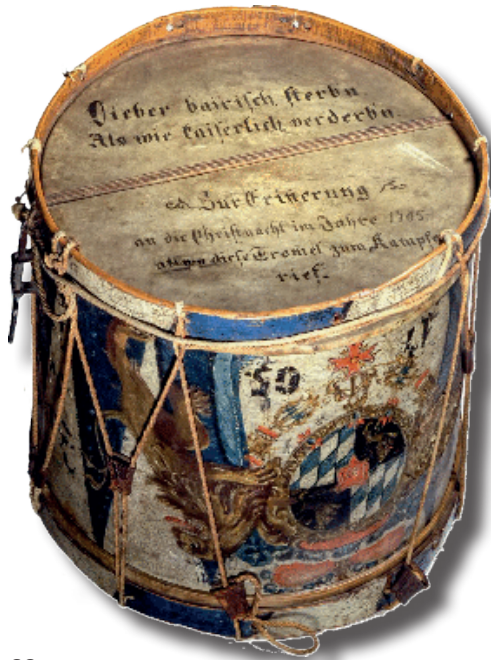 Lieber bairisch sterbn
Als wie kaiserlich verderbn.
Zur Erinerung
an die Christnacht im Jahre 1705
allwo diese Tromel zum Kampfe
rief.